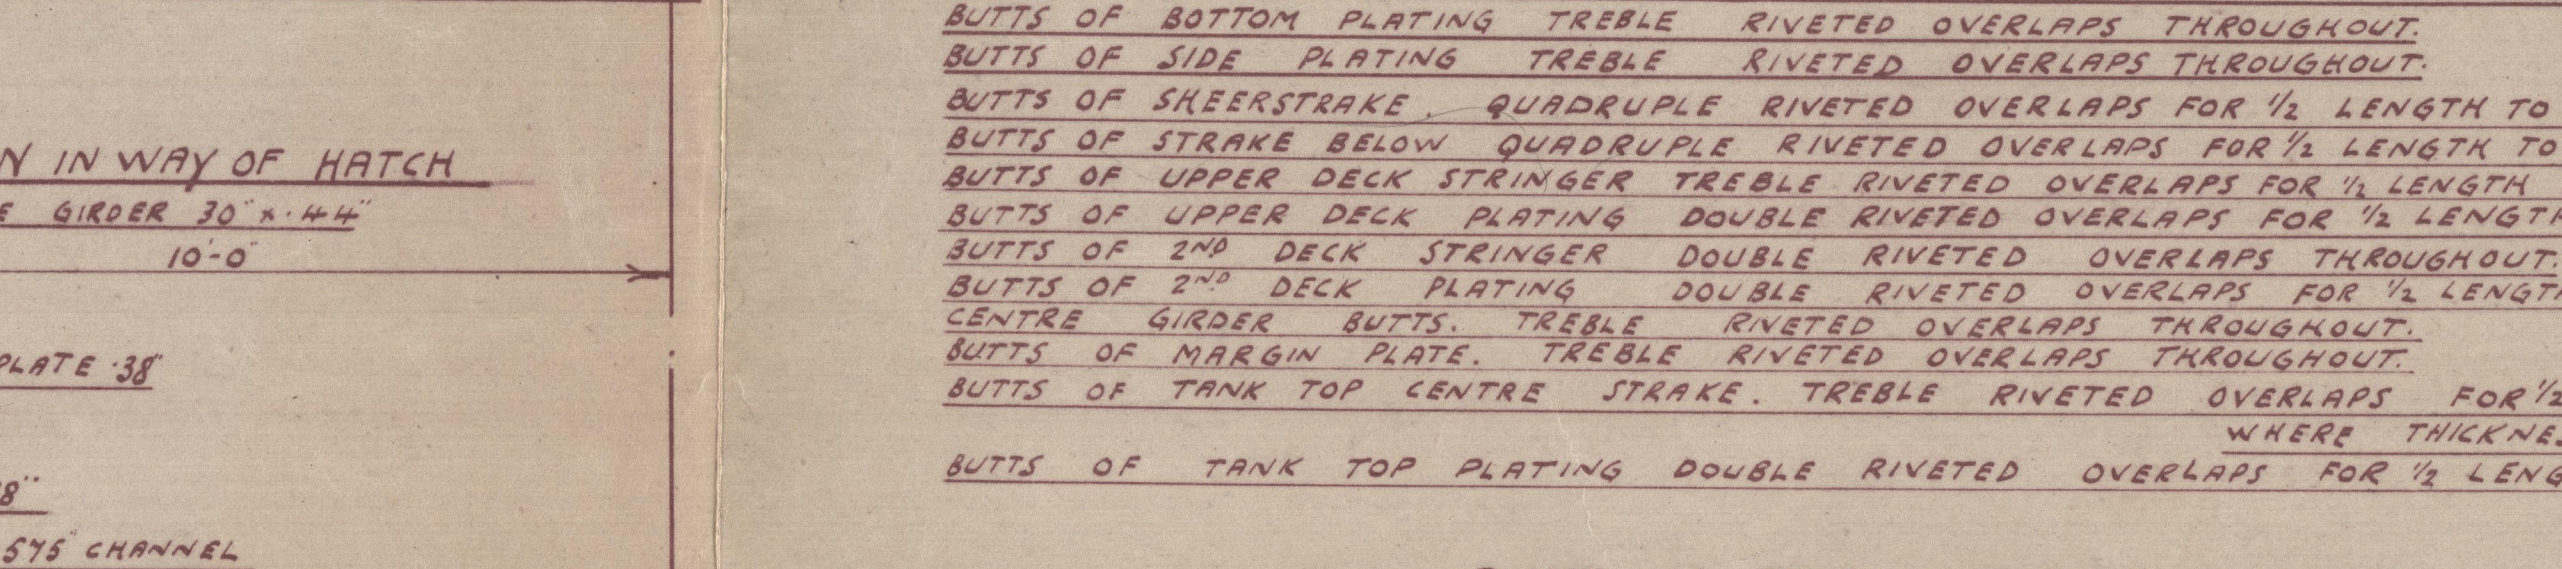 N IN WAY OF HATCH
E GIRDER 30" x .44"
10'-0"
PLATE .38"
8"
575 CHANNEL
BUTTS OF BOTTOM PLATING TREBLE RIVETED OVERLAPS THROUGHOUT.
BUTTS OF SIDE PLATING TREBLE RIVETED OVERLAPS THROUGHOUT.
BUTTS OF SHEERSTRAKE. QUADRUPLE RIVETED OVERLAPS FOR 1/2 LENGTH TO
BUTTS OF STRAKE BELOW QUADRUPLE RIVETED OVERLAPS FOR 1/2 LENGTH TO
BUTTS OF UPPER DECK STRINGER TREBLE RIVETED OVERLAPS FOR 1/2 LENGTH
BUTTS OF UPPER DECK PLATING DOUBLE RIVETED OVERLAPS FOR 1/2 LENGTH
BUTTS OF 2ND DECK STRINGER DOUBLE RIVETED OVERLAPS THROUGHOUT.
BUTTS OF 2ND DECK PLATING DOUBLE RIVETED OVERLAPS FOR 1/2 LENGTH
CENTRE GIRDER BUTTS. TREBLE RIVETED OVERLAPS THROUGHOUT.
BUTTS OF MARGIN PLATE. TREBLE RIVETED OVERLAPS THROUGHOUT.
BUTTS OF TANK TOP CENTRE STRAKE. TREBLE RIVETED OVERLAPS FOR 1/2
WHERE THICKNES
BUTTS OF TANK TOP PLATING DOUBLE RIVETED OVERLAPS FOR 1/2 LENG